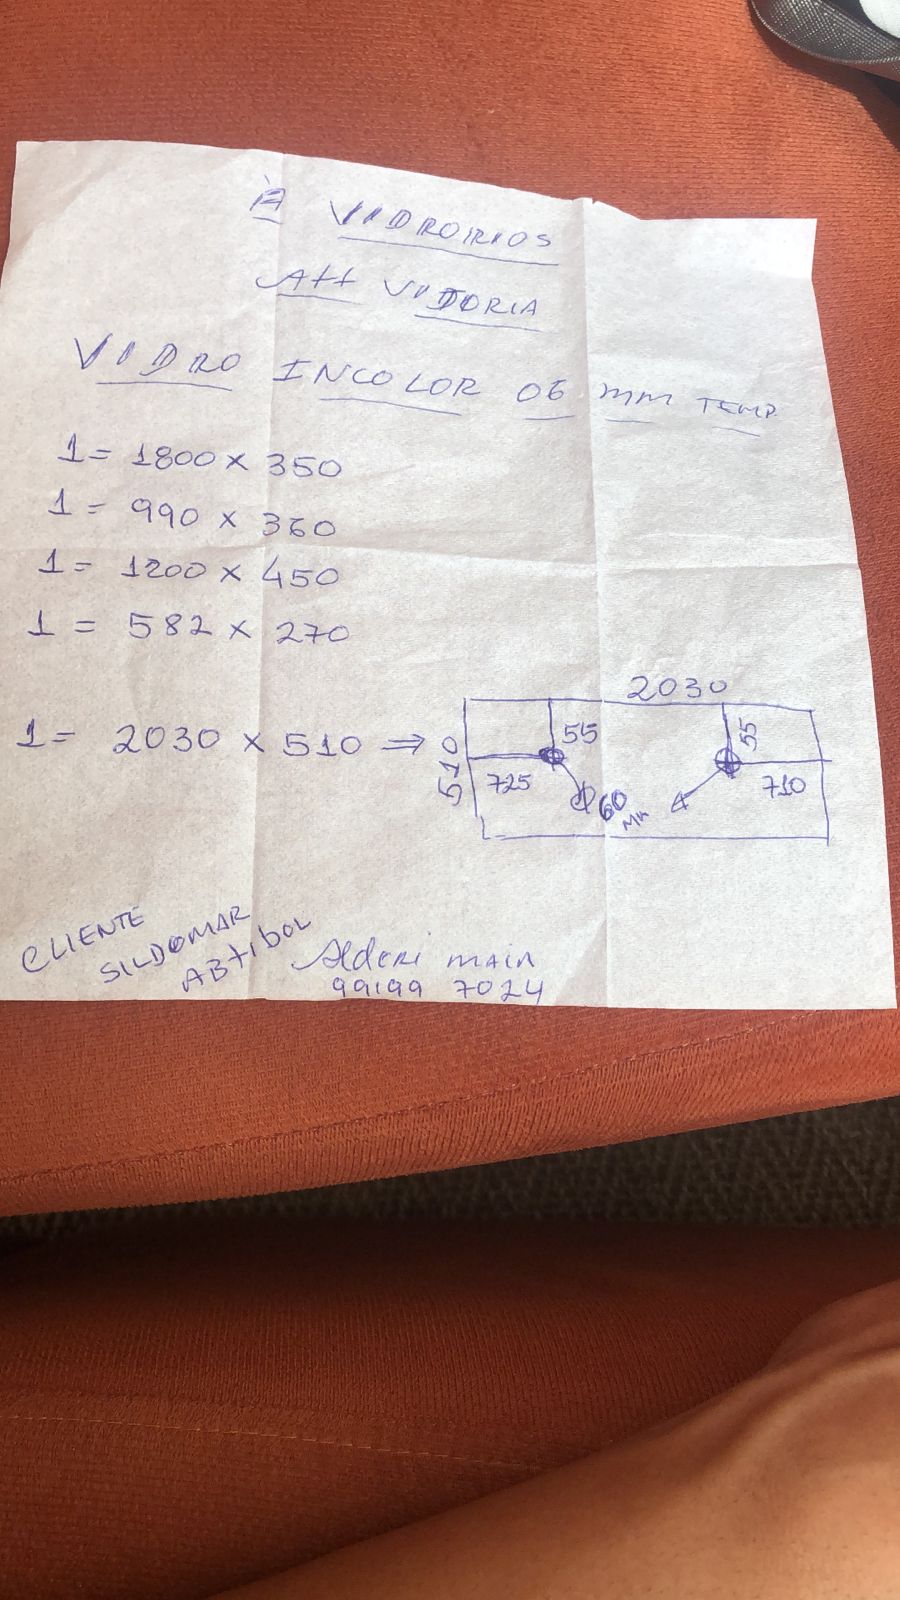 À VIDROIRIOS
Att VITORIA
VIDRO INCOLOR 06 mm TEMP.
1 = 1800 x 350
1 = 990 x 360
1 = 1200 x 450
1 = 582 x 270
1 = 2030 x 510 ⇒
2030
510
55
55
725
710
Ø 60 MM
CLIENTE
SILDOMAR
ABTIBOL
Alderi MAIA
99199 7024